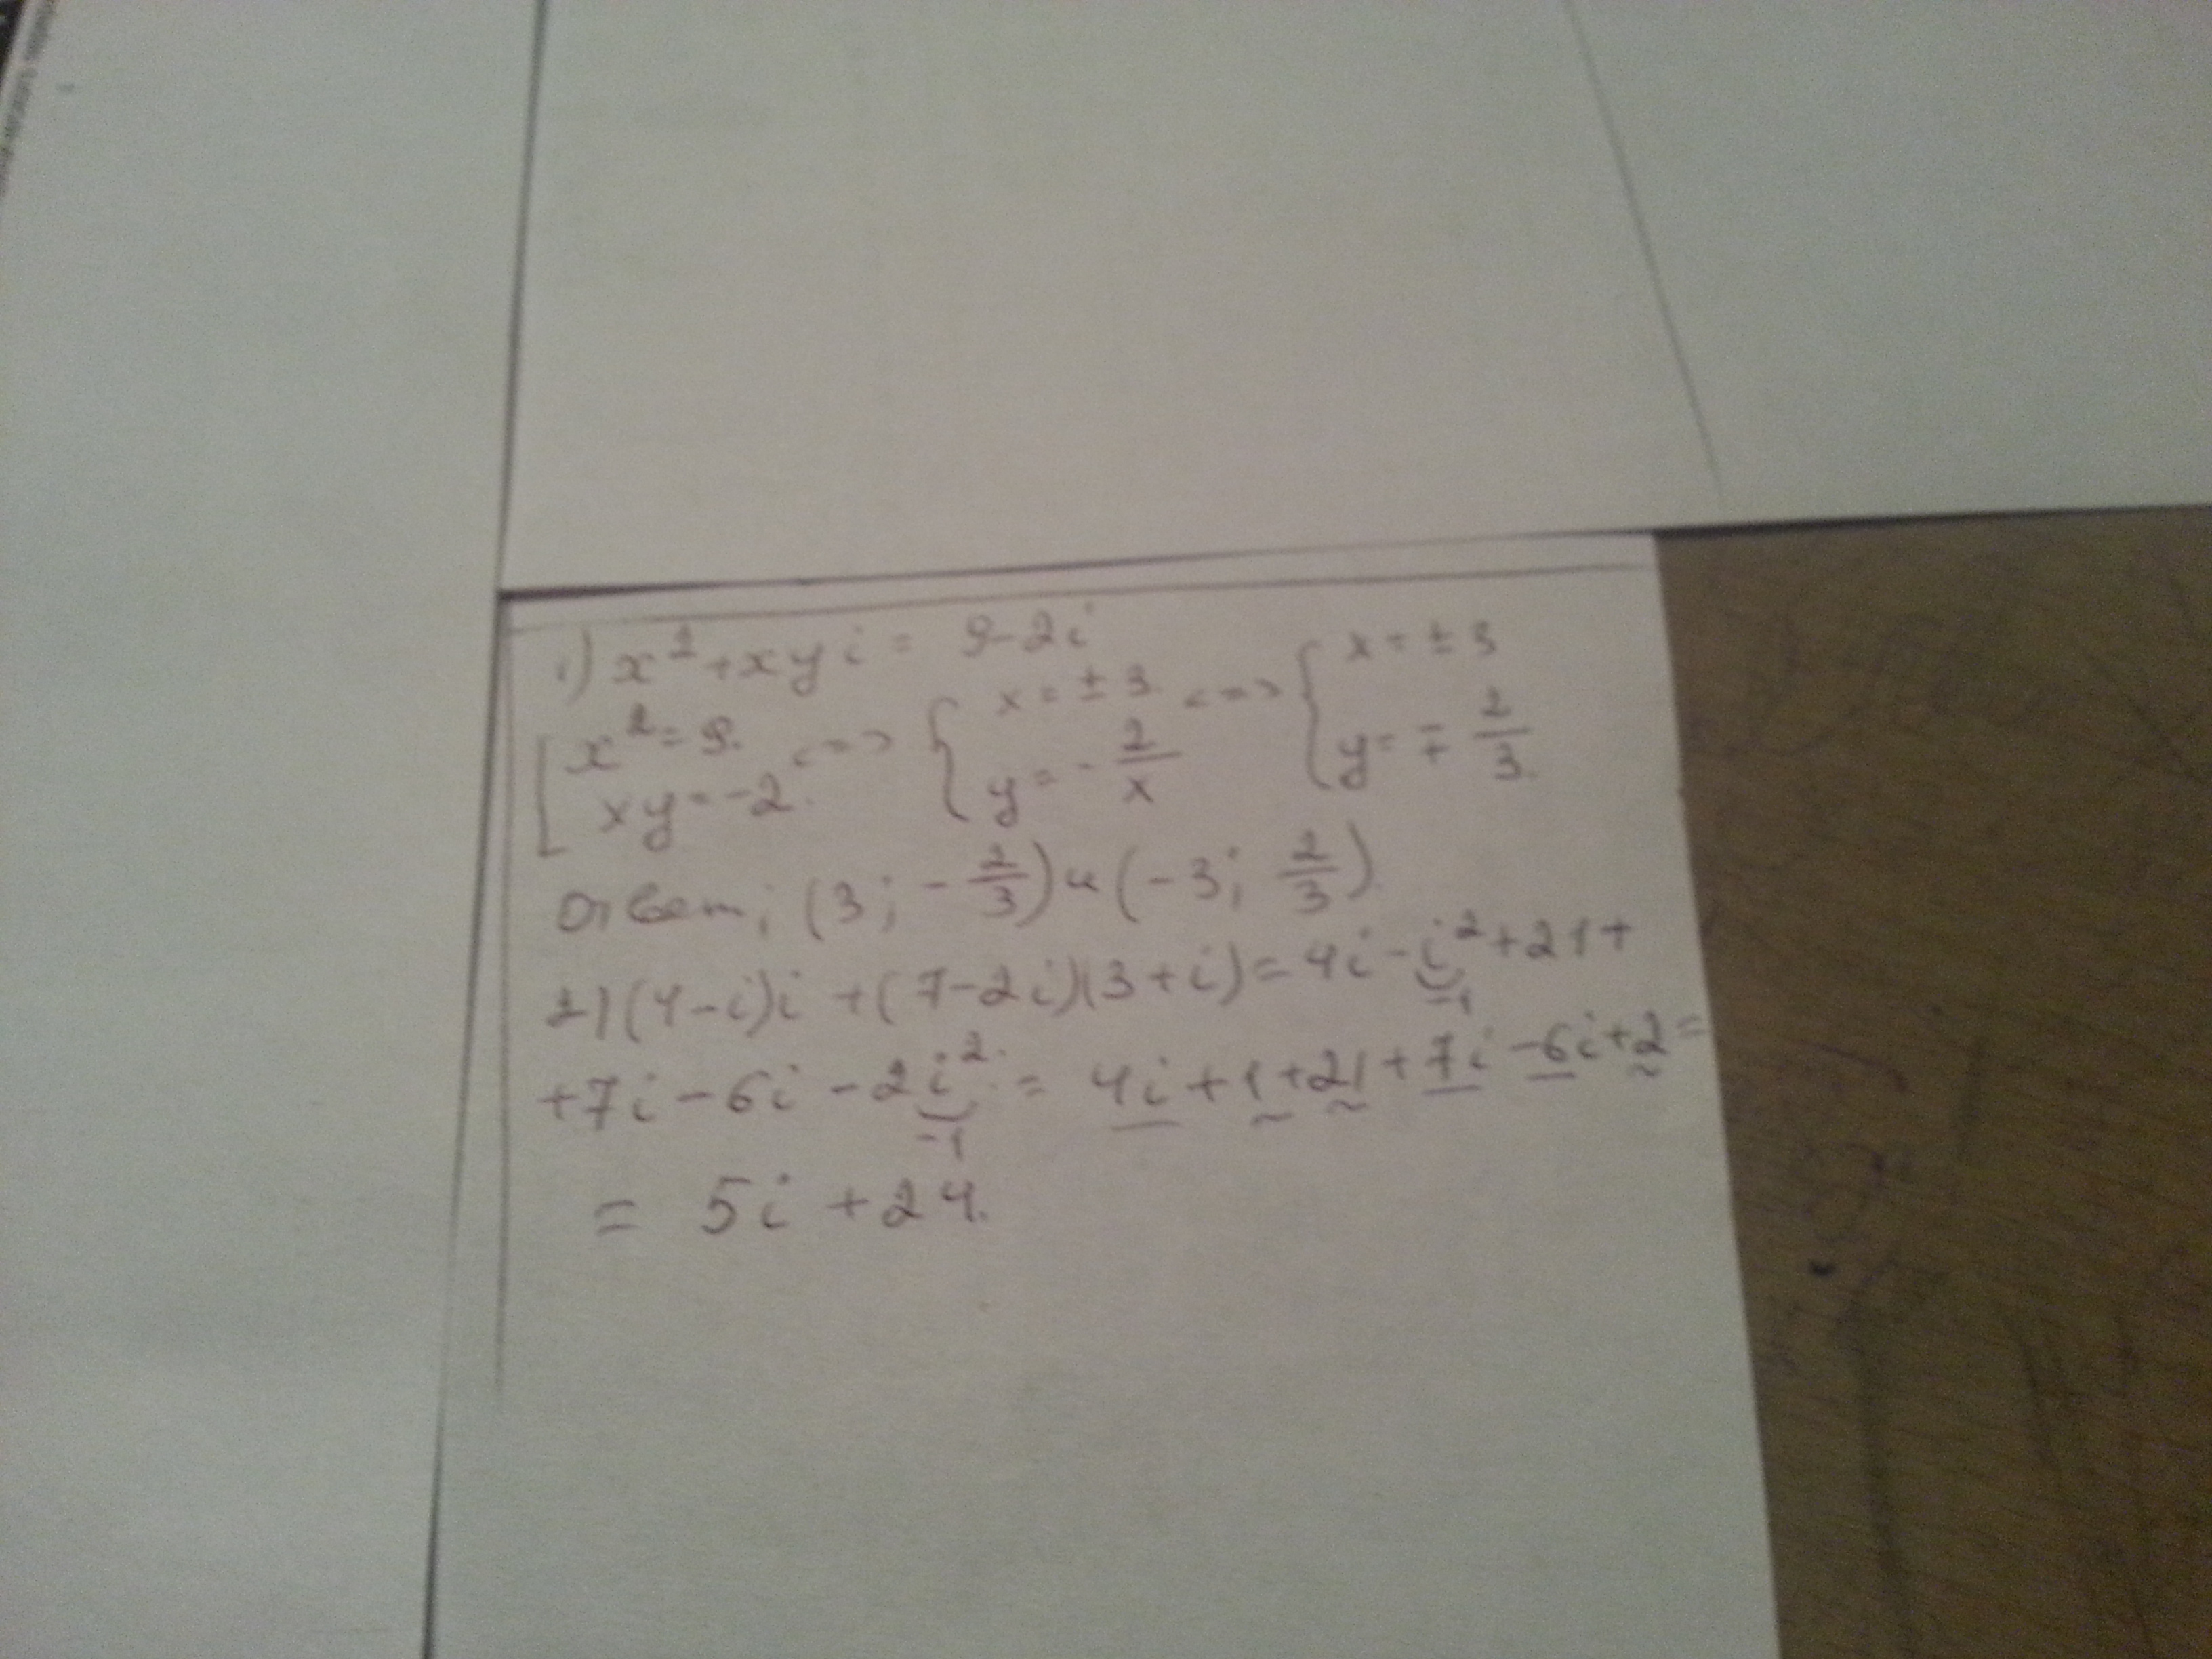 1) x² + xyi = 9-2i
[ x² = 9. xy = -2. <=> { x = ±3 y = - 2/x <=> { x = ±3 y = ∓ 2/3.
Ответ; (3; - 2/3) и (-3; 2/3).
2) (4-i)i + (7-2i)(3+i) = 4i - i² + 21 +
-1
+7i - 6i - 2i² = 4i + 1 + 21 + 7i - 6i + 2 =
-1
= 5i + 24.